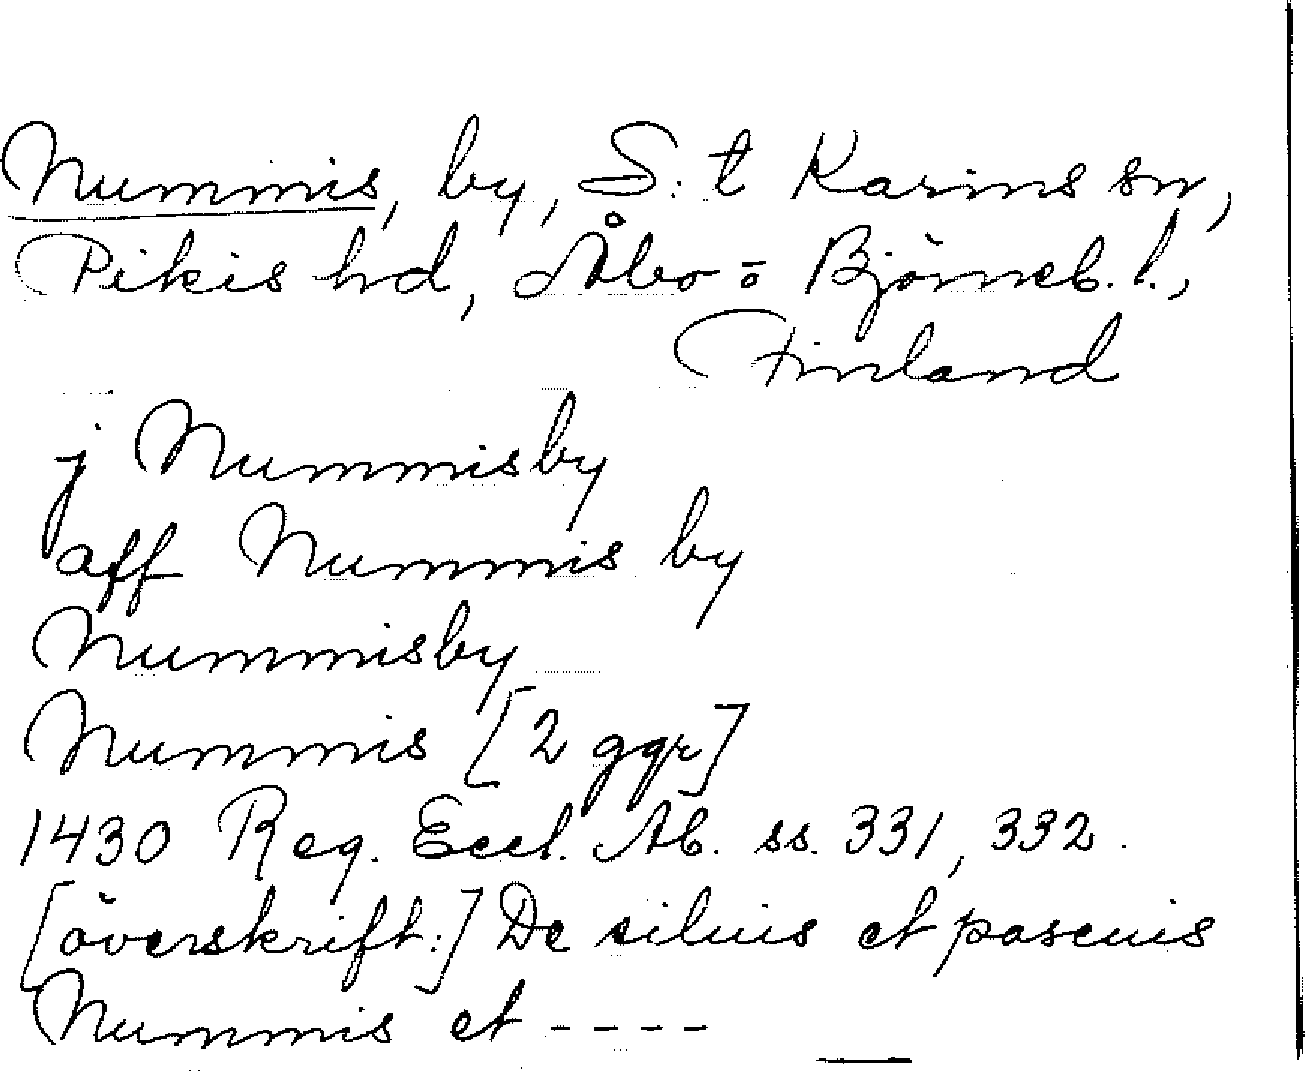 Nummis, by, S:t Karins sn,
Pikis hd, Åbo = Björneb. l.,
Finland
j Nummisby
aff Nummis by
Nummisby
Nummis [2 ggr]
1430 Reg. Eccl. Ab. ss. 331, 332.
[överskrift:] De siluis et pascuis
Nummis et ----